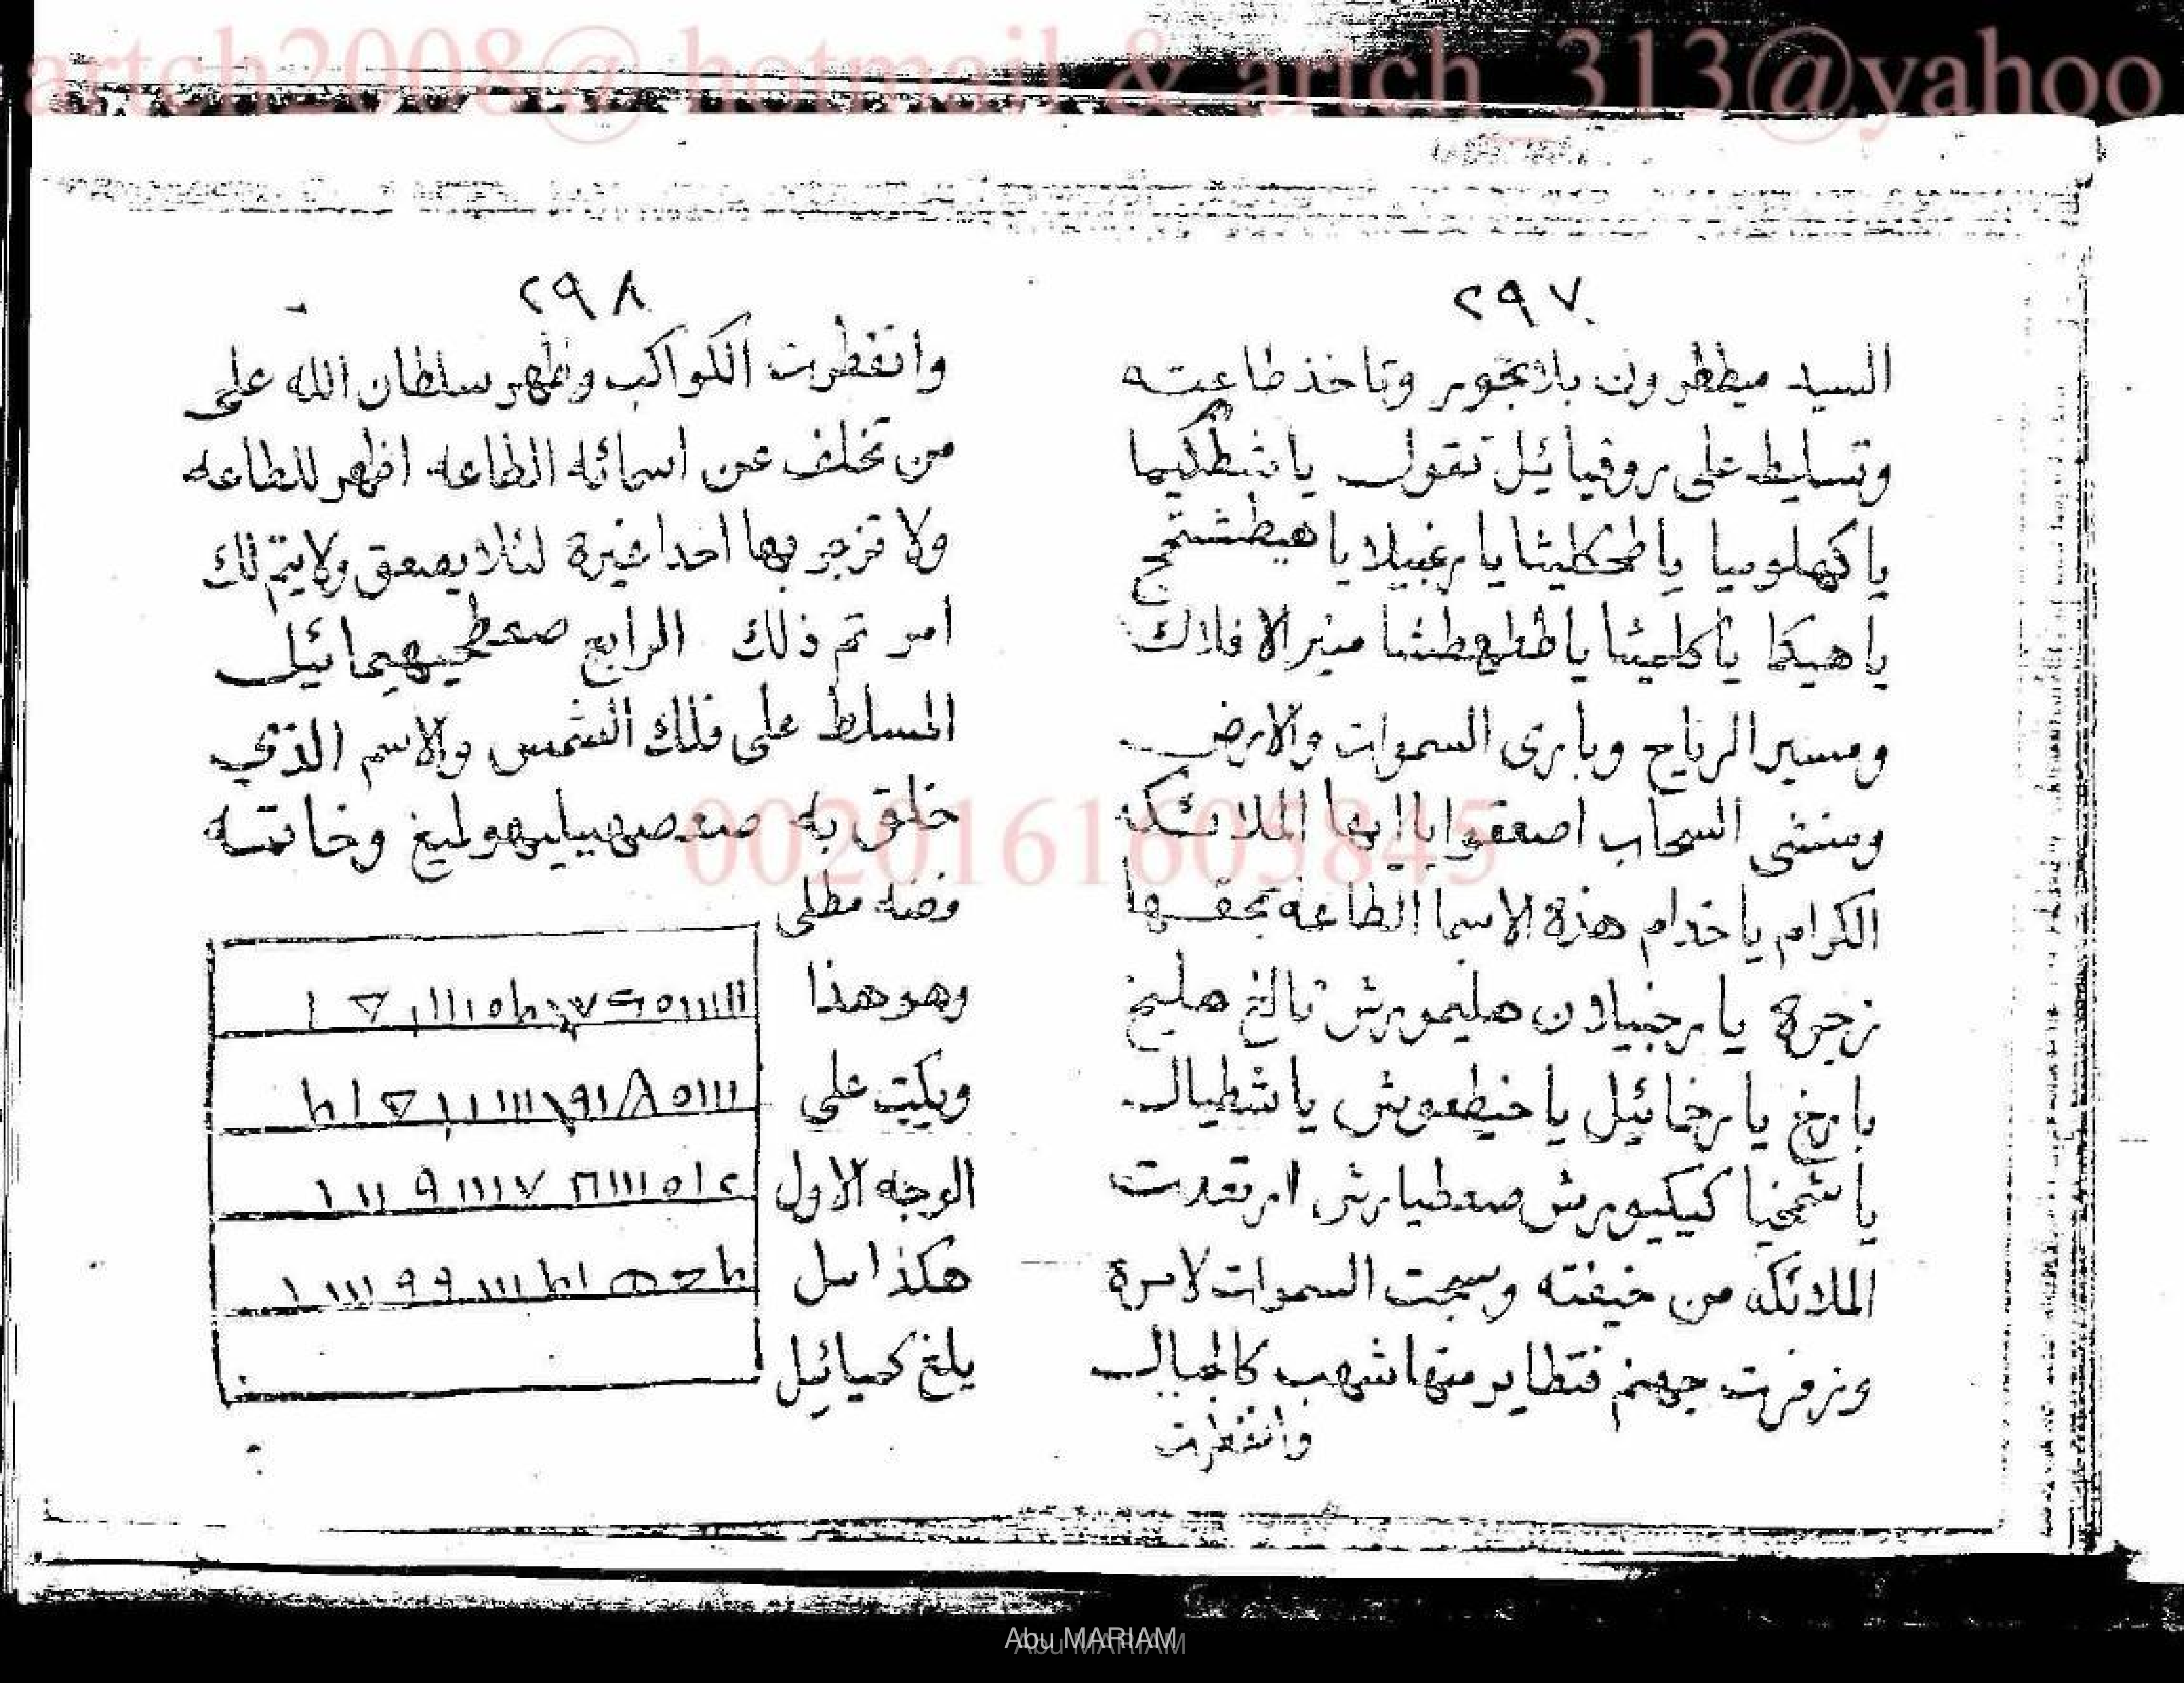 artch2008@ hotmail & artch_313@yahoo
٢٩٧
السيد ميططرون بلا بخور وتاخذ طاعته
وتسليط على روقيائيل تقول يا شطكيما
يا كهلوميا يا طخكطيثا يا رغبيلا يا هيطشتمخ
يا هيكا يا كلميثا يا طلع طشا منير الافلاك
ومسير الرياح وبارى السموات والارض
ومنشى السحاب اصعقوا يا ايها الملائكه
الكرام يا خدام هذه الاسما الطاعة بحقها
زجرة يا رجنيلاون هليمورش نالغ هليخ
يا رخ يا رخمائيل يا خيطعوش يا شطيال
يا شمخيا كيكيورش صعطيارش ارتعدت
الملائكه من خيفته وسبحت السموات لامره
وزفرت جهنم فتطاير منها شهب كالجبال
وانفطرت
٢٩٨
وانفطرت الكواكب وظهر سلطان الله على
من تخلف عن اسمائه الطاعه اظهر للطاعه
ولا تزجر بها احدا غيره لئلا يصعق ولا يتم لك
امر تم ذلك الرابع صعطحيهيمائيل
المسلط على فلك الشمس والاسم الذي
خلق به صعصهيبليهوليغ وخاتمه
فضه مطلى
وهو هذا
ويكتب على
الوجه الاول
هكذا
يلغ كميائيل
0020161605845
Abu MARIAM